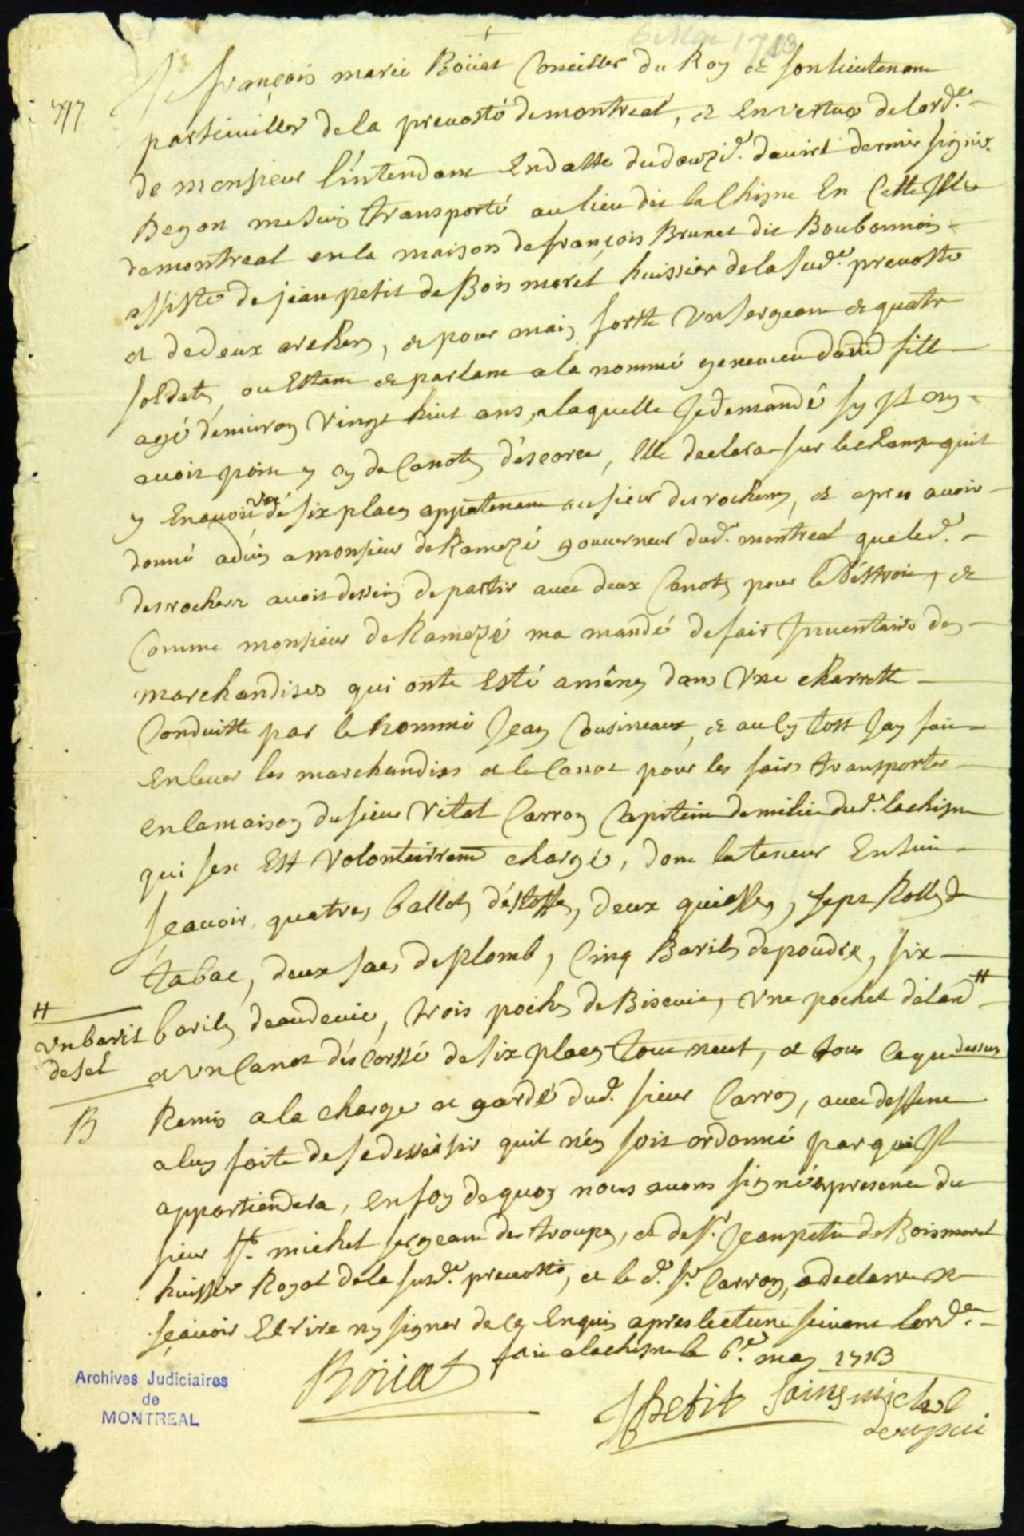 6 May 1713
Je françois marie Boüat Conseiller du Roy et son lieutenant
particuiller de la prevosté de montreal, et En vertus de lord.e
de monsieur L'intendant En datte du douzie. d'avril dernier signée
Begon me suis transporté au lieu dit la Chisne En Cette Isle
de montreal en la maison de françois Brunet dit Boubonnois
assisté de jean petit de Boismorel huissier de la sud.e prevosté
et de deux archers, et pour main forte Un sergeant et quatre
soldats, ou Estant et parlant a la nommé genevieve david fille
agé denviron Vingt huit ans, a laquelle Je demandé sy Il ny
avoit point y cy de Canots d'escorce, Elle declara sur le champ quil
y En avoit un de six places appartenant au sieur desrochers, et apres avoir
donné advis a monsieur de Ramezé gouverneur dud. montreal que led.
desrochers avoit dessein de partir avec deux Canots pour le Déstroit, et
Comme monsieur de Ramezé ma mandé de faire Inventaire des
marchandises qui onte Esté aménez dans Une charrette
Conduitte par le nommé Jean Cousineaux, et aussy tost Jay fait
Enlever les marchandises et le Canot pour les faire transporter
en la maison du sieur Vital Carron Capitaine de milice dud. lachisne
qui sen Est Volontairement chargé, dont la teneur Ensuit
Scavoir, quatres ballots d'éstoffes, deux quiesses, sept Rolles de
tabac, deux sacs de plomb, Cinq Barils de poudre, six
barils deaudevie, trois poches de Biscuit, Une pochet délard #
# un baril de sel
et Un Canot d'éscorssé de six places tout neuf, et tous ce que dessus
B
Remis a la charge et gardé dud. sieur Carron, avec deffence
a luy faite de se dessaisir quil n'én soit ordonné par qui Il
appartiendera, en foy de quoy nous avons signé en presence du
sieur St. michel sergeant des troupes, et de Sr. Jean petit de Boismorel
huissier Royal de la susd.e prevosté, et le d. Sr. Carron, a declaré ne
scavoir Ecrire ny signer de ce Enquis apres lecture suivant lord.e
fait a lachisne le 6.e may 1713
Boüat
JPetit
saint michel
Archives Judiciaires
de
MONTREAL